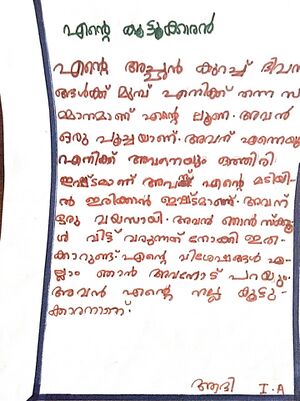 എന്റെ കൂട്ടുക്കാരൻ
എന്റെ അച്ഛൻ കുറച്ച് ദിവസ
ങ്ങൾക്ക് മുമ്പ് എനിക്ക് തന്ന സ
മ്മാനമാണ് എന്റെ ലൂണ. അവൻ
ഒരു പൂച്ചയാണ്. അവന് എന്നെയും
എനിക്ക് അവനെയും ഒത്തിരി
ഇഷ്ടമാണ് അവന് എന്റെ മടിയി
ൽ ഇരിക്കാൻ ഇഷ്ടമാണ്. അവന്
ഒരു വയസായി. അവൻ ഞാൻ സ്കൂ
ൾ വിട്ട് വരുന്നത് നോക്കി ഇരി
ക്കാറുണ്ട്. എന്റെ വിശേഷങ്ങൾ എ
ല്ലാം ഞാൻ അവനോട് പറയും.
അവൻ എന്റെ നല്ല കൂട്ടു-
ക്കാരനാണ്.
ആദി I.A